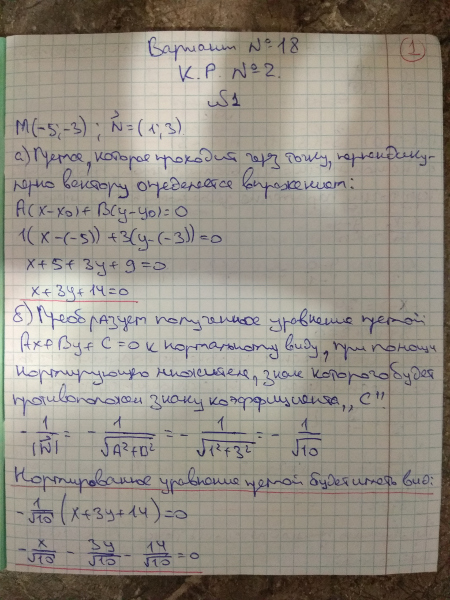 Вариант № 18
①
К.Р. №2.
№1
M(-5;-3) ; N⃗=(1;3)
а) Прямая, которая проходит через точку, перпендику-
лярно вектору определяется выражением:
A(x-x₀)+B(y-y₀)=0
1(x-(-5))+3(y-(-3))=0
x+5+3y+9=0
x+3y+14=0
б) Преобразуем полученное уравнение прямой
Ax+By+C=0 к нормальному виду, при помощи
нормирующего множителя, знак которого будет
противоположен знаку коэффициента „C".
-1/|N⃗| = -1/√(A²+B²) = -1/√(1²+3²) = -1/√10
Нормированное уравнение прямой будет иметь вид:
-1/√10 (x+3y+14)=0
-x/√10 - 3y/√10 - 14/√10 = 0